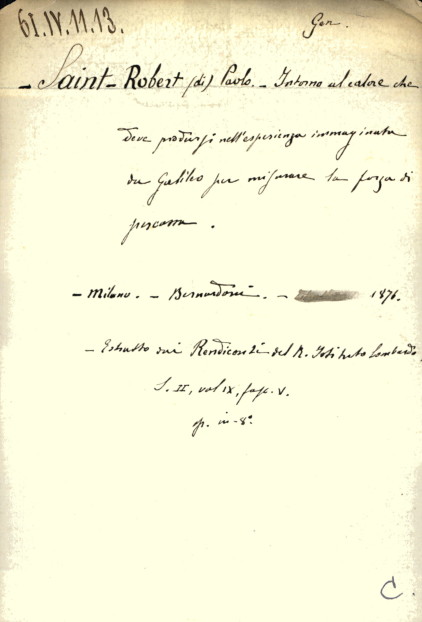 61.IV.11.13.
Gen.
- Saint-Robert (di) Paolo. - Intorno al calore che
deve prodursi nell'esperienza immaginata
da Galileo per misurare la forza di
percossa.
- Milano. - Bernardoni. - 1876.
- Estratto dai Rendiconti del R. Istituto Lombardo,
S. II, vol IX, fasc. V.
op. in-8°.
C.